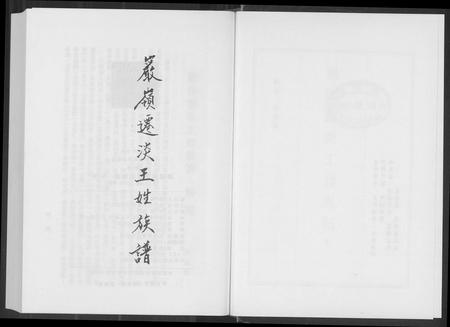 巖嶺遷淡王姓族譜